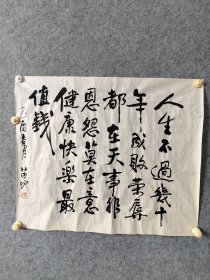 人生不過幾十
年成敗榮辱
都在天事非
恩怨莫在意
健康快樂最
值錢